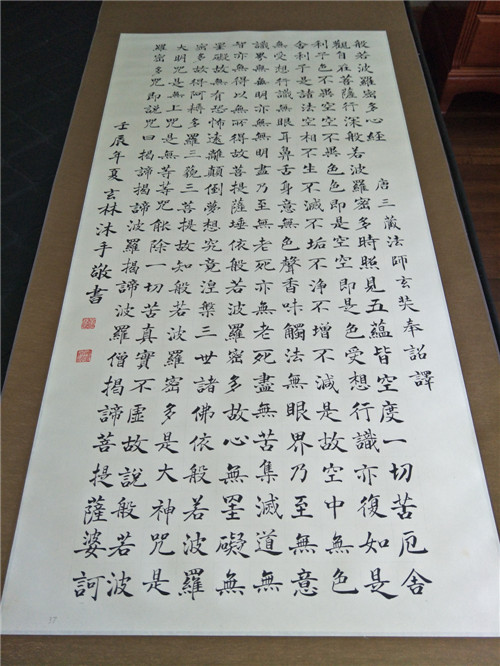 般若波羅密多心經 唐三藏法師玄奘奉詔譯
觀自在菩薩行深般若波羅密多時照見五蘊皆空度一切苦厄舍
利子色不異空空不異色色即是空空即是色受想行識亦復如是
舍利子是諸法空相不生不滅不垢不淨不增不減是故空中無色
無受想行識無眼耳鼻舌身意無色聲香味觸法無眼界乃至無意
識界無無明亦無無明盡乃至無老死亦無老死盡無苦集滅道無
智亦無得以無所得故菩提薩埵依般若波羅密多故心無罣礙無
罣礙故無有恐怖遠離顛倒夢想究竟涅槃三世諸佛依般若波羅
密多故得阿耨多羅三藐三菩提故知般若波羅密多是大神咒是
大明咒是無上咒是無等等咒能除一切苦真實不虛故說般若波
羅密多咒即說咒曰揭諦揭諦波羅揭諦波羅僧揭諦菩提薩婆訶
壬辰年夏玄林沐手敬書
17